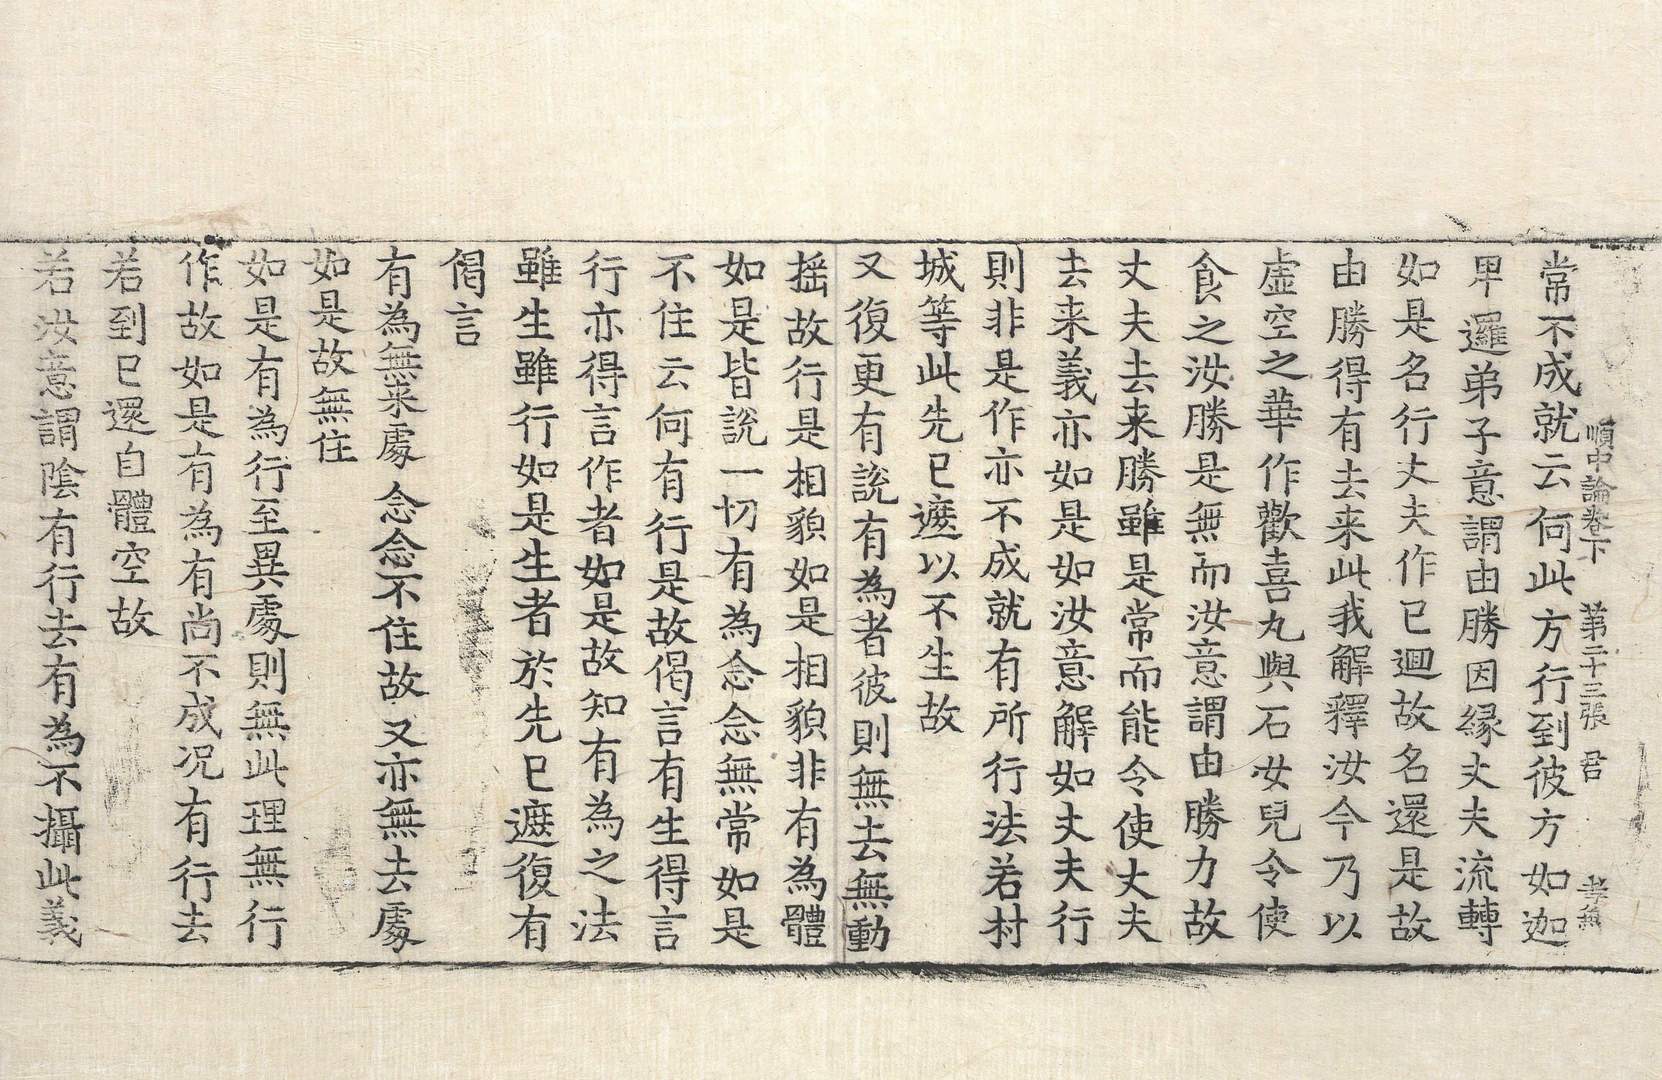 順中論卷下 第二十三張 君
常不成就云何此方行到彼方如迦
卑邏弟子意謂由勝因緣丈夫流轉
如是名行丈夫作已迴故名還是故
由勝得有去来此我解釋汝今乃以
虛空之華作歡喜丸與石女兒令使
食之汝勝是無而汝意謂由勝力故
丈夫去来勝雖是常而能令使丈夫
去来義亦如是如汝意解如丈夫行
則非是作亦不成就有所行法若村
城等此先已遮以不生故
又復更有說有為者彼則無去無動
搖故行是相貌如是相貌非有為體
如是皆說一切有為念念無常如是
不住云何有行是故偈言有生得言
行亦得言作者如是故知有為之法
雖生雖行如是生者於先已遮復有
偈言
有為無来處 念念不住故 又亦無去處
如是故無住
如是有為行至異處則無此理無行
作故如是有為有尚不成况有行去
若到已還自體空故
若汝意謂陰有行去有為不攝此義